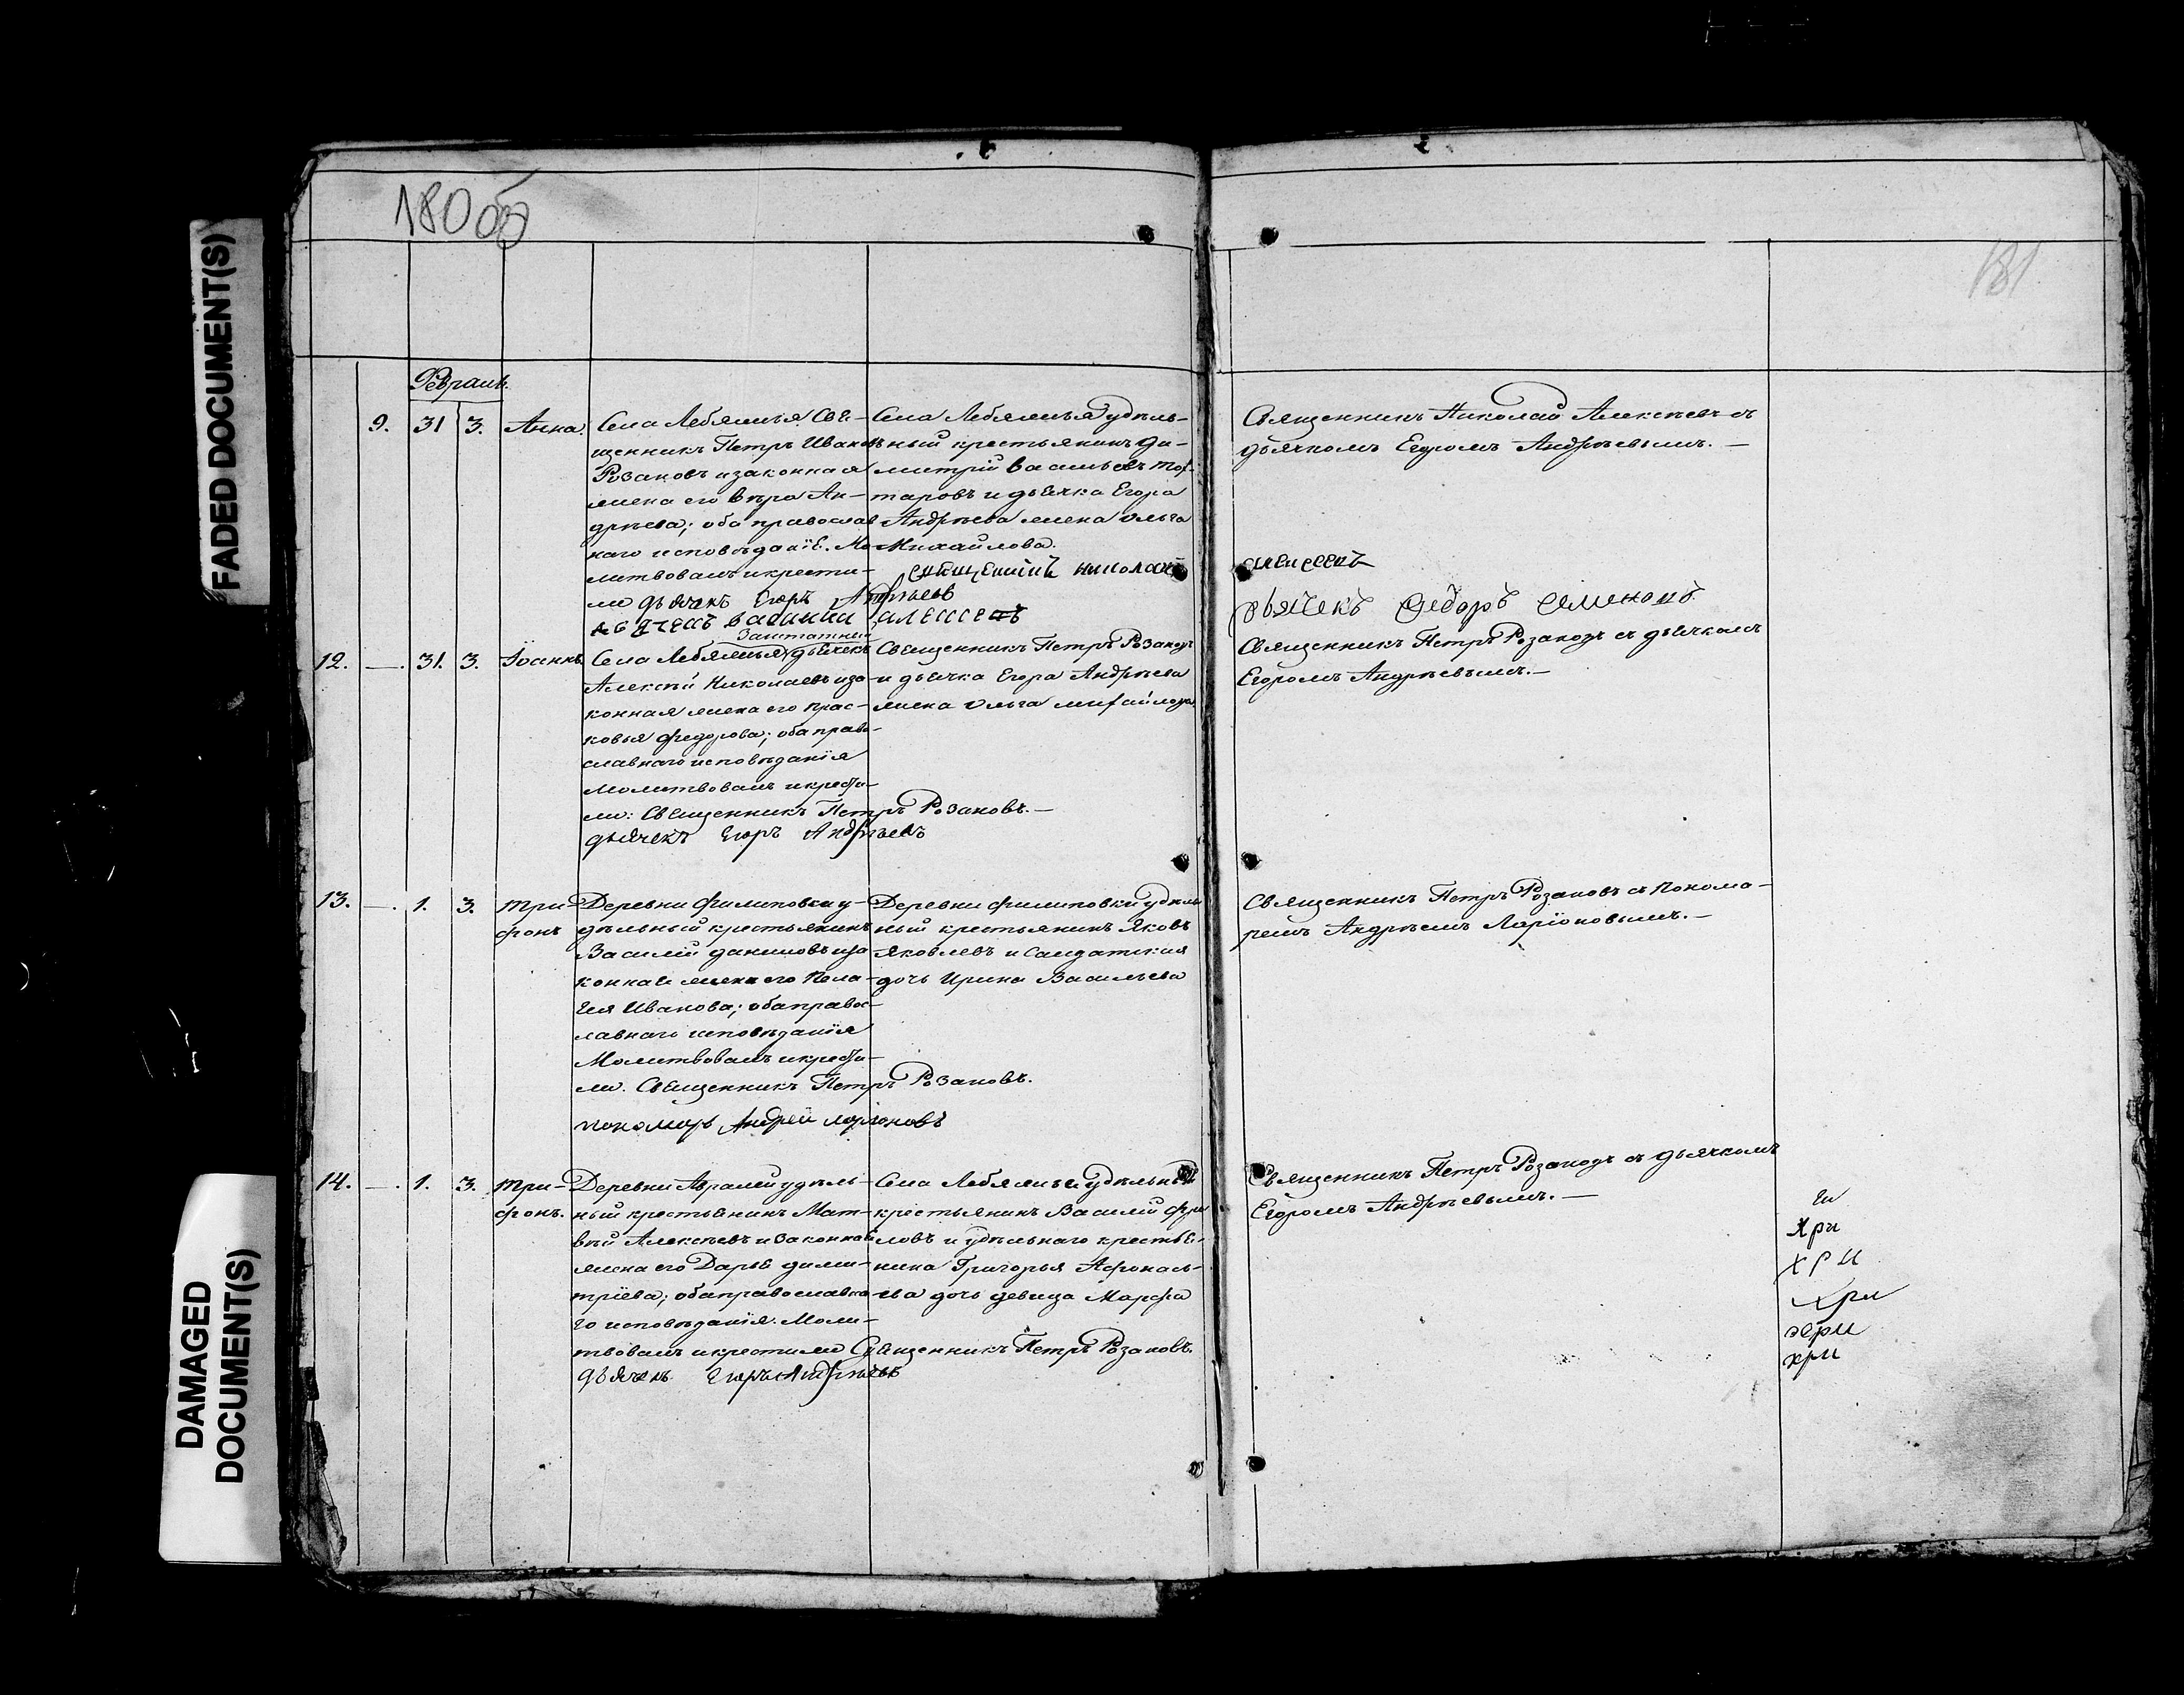 FADED DOCUMENT(S)
DAMAGED
DOCUMENT(S)
180 об
181
Февраль.
9. 31 3. Анна.
Села Лебяжья Свя-
щенникъ Петръ Ивановъ
Розановъ и законная
жена его Вѣра Ан-
дрѣева; оба православ
наго исповѣданіе. Мо-
литвовалъ и крести-
ли дьячекъ Егоръ Андрѣевъ
Села Лебяжья удѣль-
ный крестьянинъ Ди-
митрій Васильевъ
таровъ и дьячка Егора
Андрѣева жена Ольга
Михайлова.
священникъ николай
алексеевъ
Священникъ Николай Алексѣевъ съ
дьячкомъ Егоромъ Андрѣевымъ. —
дьячекъ Федоръ Семеновъ
12. —. 31. 3. Іоаннъ.
заштатный
Села Лебяжья, дьячекъ
Алексѣй Николаевъ и за-
конная жена его Прас-
ковья Федорова; оба право-
славнаго исповѣданія
Молитвовалъ и крести-
ли: Священникъ Петръ Розановъ. —
дьячекъ Егоръ Андрѣевъ
Священникъ Петръ Розановъ
и дьячка Егора Андрѣева
жена Ольга михайлова
Священникъ Петръ Розановъ съ дьячкомъ
Егоромъ Андрѣевымъ. —
13. —. 1. 3. Три-
фонъ
Деревни Филиповки у-
дѣльный крестьянинъ
Василій Даниловъ и за
конная жена его Пела-
гия Иванова; оба правос-
лавнаго исповѣданія
Молитвовалъ и крести-
ли. Священникъ Петръ Розановъ.
пономарь Андрей Ларионовъ
Деревни Филиповки удѣль
ный крестьянинъ Яковъ
Яковлевъ и Салдатская
дочь Ирина Васильева
Священникъ Петръ Розановъ съ Понома-
ремъ Андрѣемъ Ларіоновымъ. —
14. —. 1. 3. Три-
фонъ.
Деревни Авралей удѣль-
ный крестьянинъ Мат-
вѣй Алексѣевъ и законная
жена его Дарья Дими-
тріева; оба православна
го исповѣданія. Моли-
твовалъ и крестили Священникъ Петръ Розановъ.
дьячекъ Егоръ Андрѣевъ
Села Лебяжья удѣльный
крестьянинъ Василій
ловъ и удѣльнаго крестья-
нина Григорья Афонась-
ева дочь девица Марфа
Священникъ Петръ Розановъ съ дьячкомъ
Егоромъ Андрѣевымъ. —
Хри
хри
хри
хри